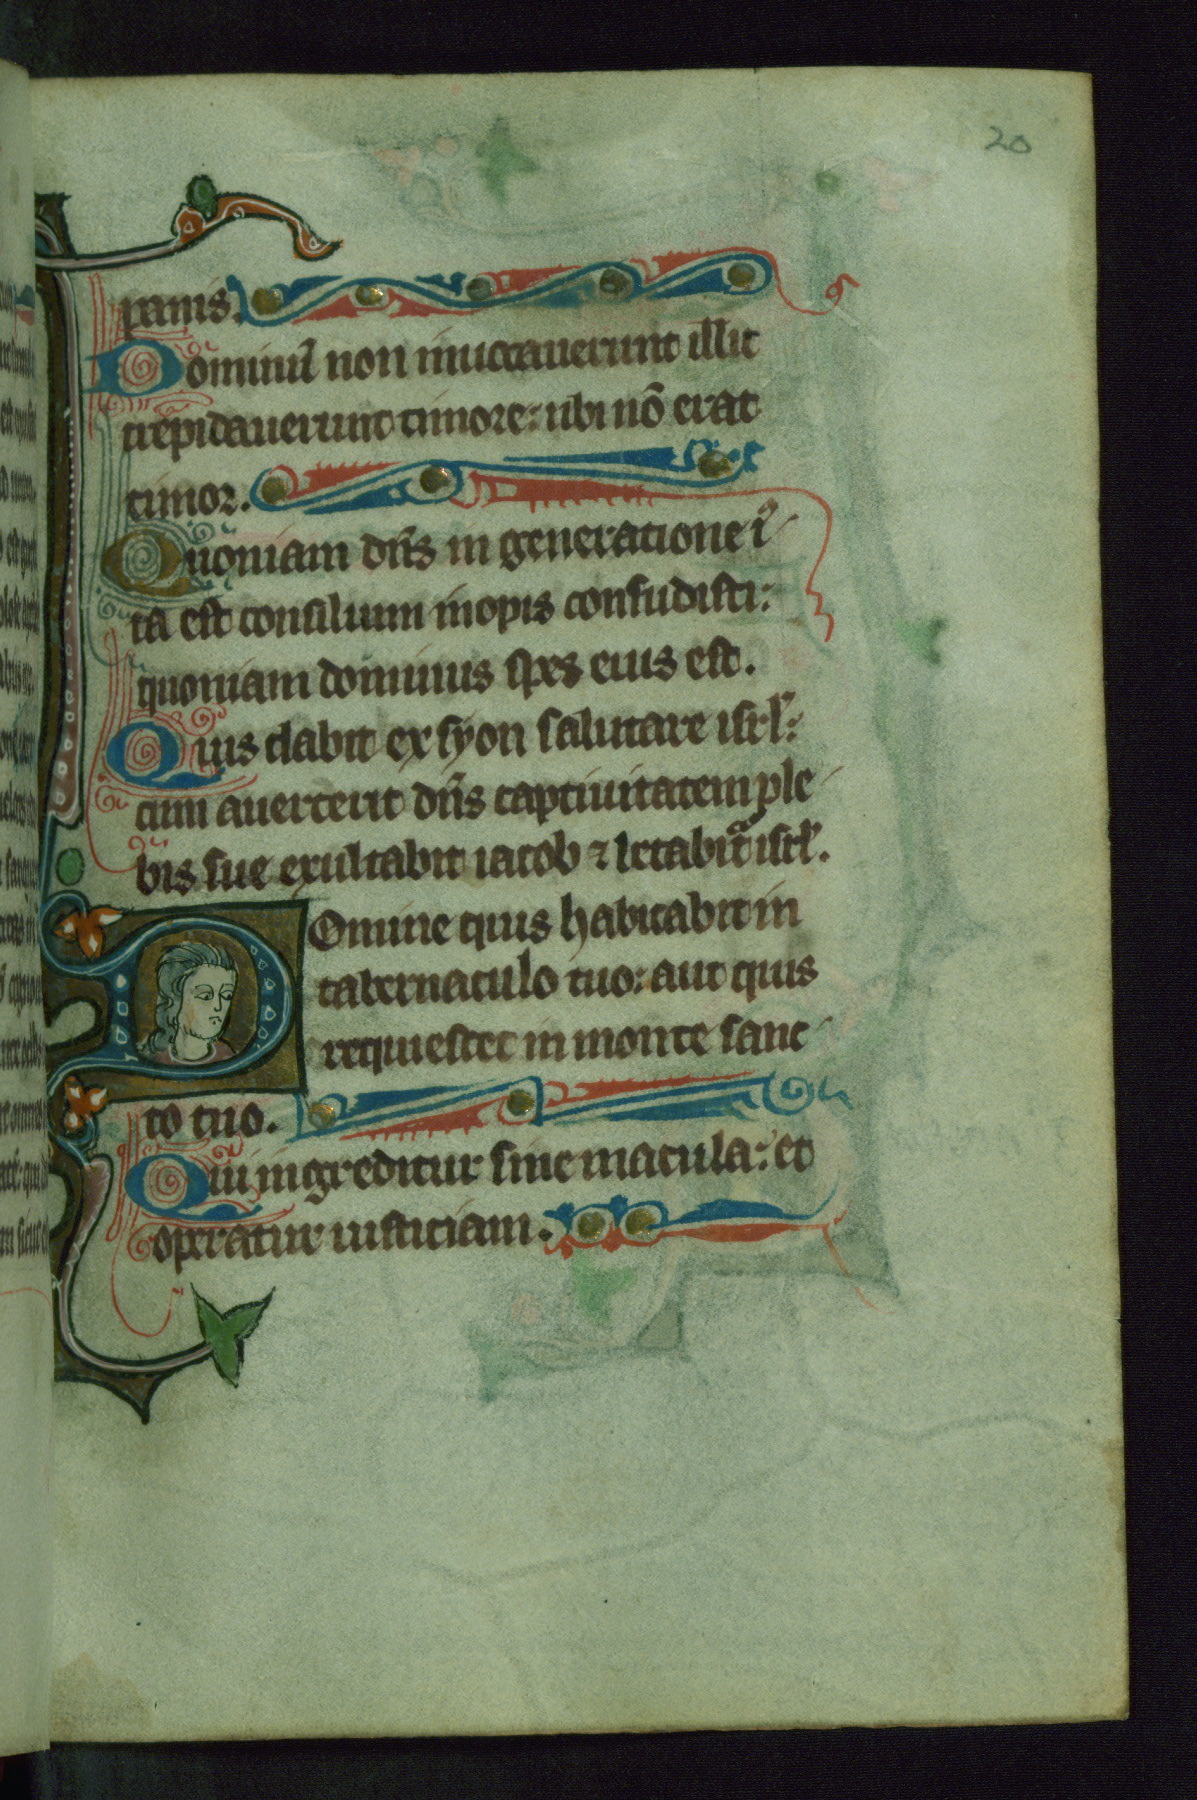 20
panis.
Dominū non inuocauerunt illic
trepidauerunt timore: ubi nō erat
timor.
Quoniam dn̄s in generatione iᵒ
ta est consilium inopis confudisti:
quoniam dominus spes eius est.
Quis dabit ex syon salutare isrl̄:
cum auerterit dn̄s captiuitatem ple
bis sue exultabit iacob ⁊ letabitᵘ isrl̄.
Domine quis habitabit in
tabernaculo tuo: aut quis
requiescet in monte sanc
to tuo.
Qui ingreditur sine macula: et
operatur iusticiam.